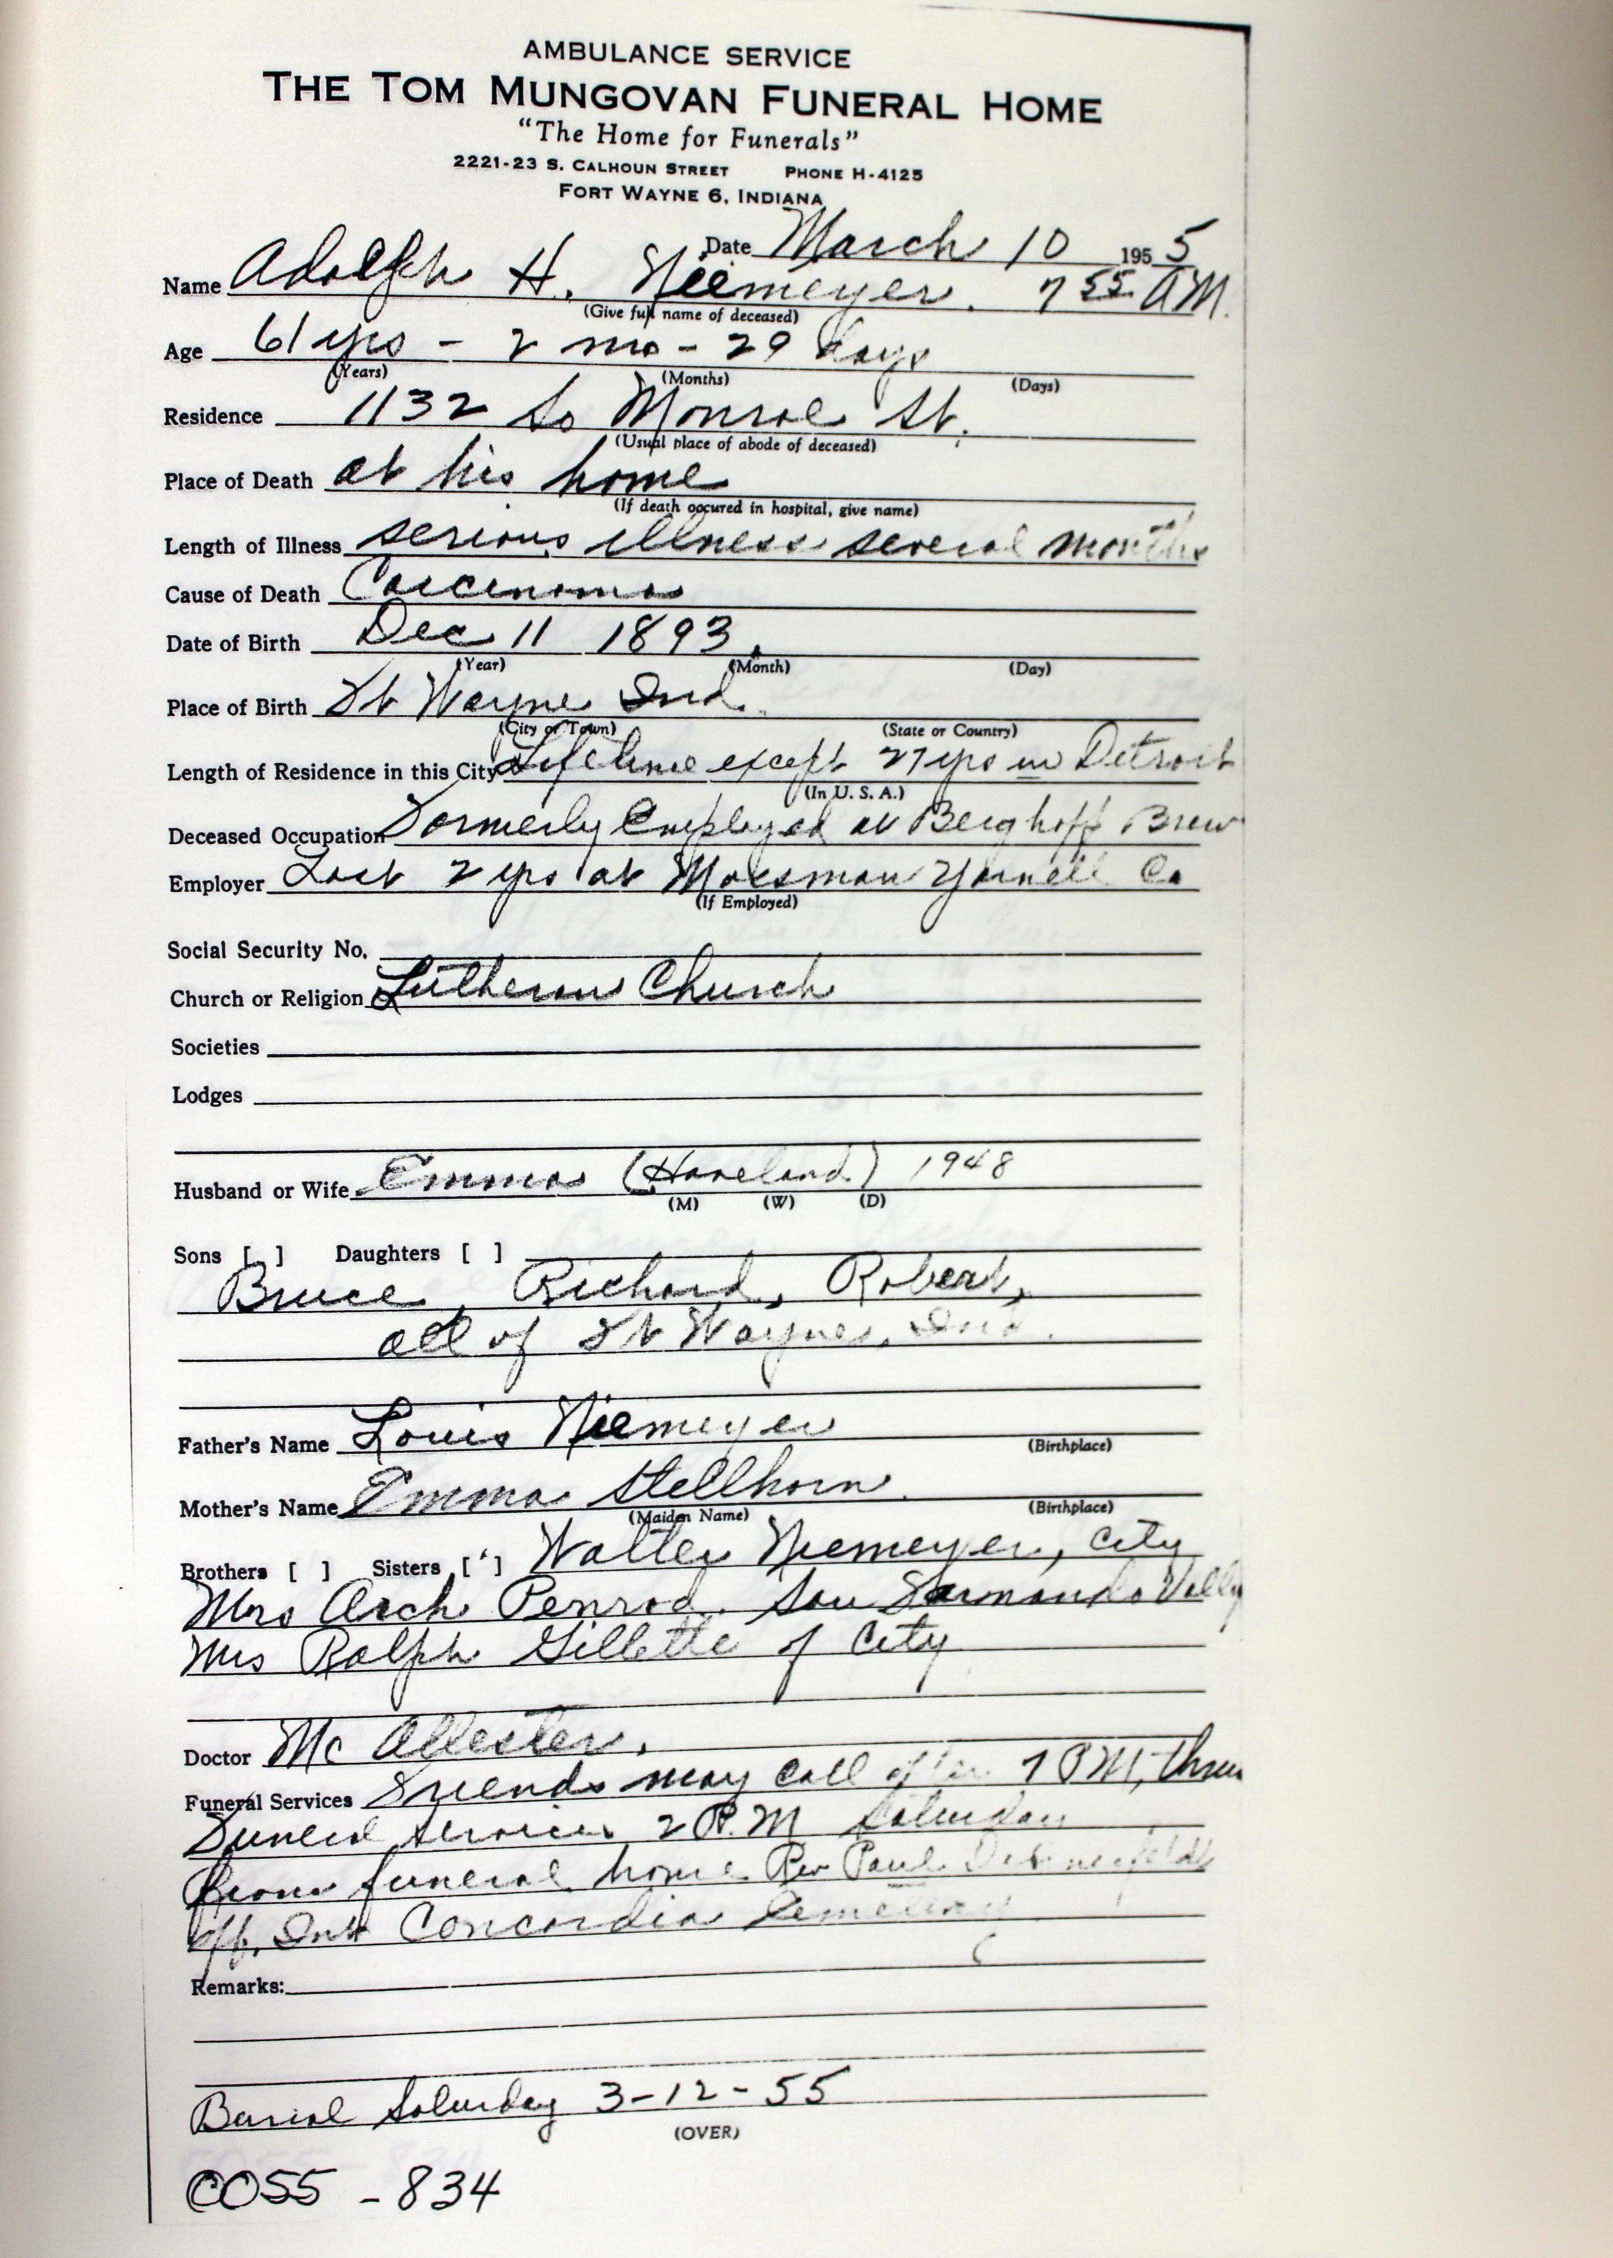 AMBULANCE SERVICE
THE TOM MUNGOVAN FUNERAL HOME
"The Home for Funerals"
2221-23 S. CALHOUN STREET PHONE H-4125
FORT WAYNE 6, INDIANA
Date March 10 1955
Name Adolph H. Niemeyer. 7 55 AM.
(Give full name of deceased)
Age 61 yrs - 2 mo - 29 days
(Years) (Months) (Days)
Residence 1132 So Monroe St.
(Usual place of abode of deceased)
Place of Death at his home
(If death occured in hospital, give name)
Length of Illness serious illness several months
Cause of Death Carcinoma
Date of Birth Dec 11 1893.
(Year) (Month) (Day)
Place of Birth Ft Wayne Ind.
(City or Town) (State or Country)
Length of Residence in this City Lifetime except 27 yrs in Detroit
(In U. S. A.)
Deceased Occupation Formerly Employed at Berghoff Brew
Employer Last 2 yrs at Mossman Yarnelle Co
(If Employed)
Social Security No.
Church or Religion Lutheran Church
Societies
Lodges
Husband or Wife Emma (Haveland) 1948
(M) (W) (D)
Sons [ ] Daughters [ ]
Bruce, Richard, Robert,
all of Ft Wayne, Ind.
Father's Name Louis Niemeyer
(Birthplace)
Mother's Name Emma Stellhorn.
(Maiden Name) (Birthplace)
Brothers [ ] Sisters [ ] Walter Niemeyer, City
Mrs Arch Penrod. San Fernando Vally
Mrs Ralph Gillette of City
Doctor Mc Allester.
Funeral Services Friends may call after 7 PM, thur
Funeral services 2 P.M Saturday
from funeral home Rev Paul
off. Int Concordia Cemetery
Remarks:
Burial Saturday 3-12-55
(OVER)
CO55 - 834